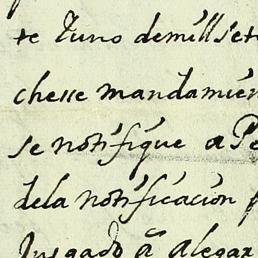 te Iuno demill sete
chesse mandamien
se notifique a Pe
dela notificación
Jusgado a alegar